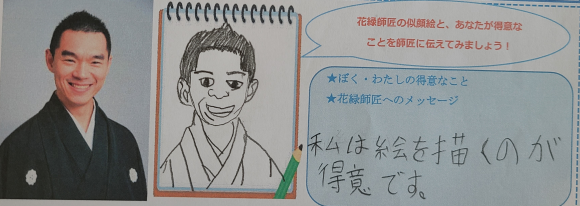 花緑師匠の似顔絵と、あなたが得意な
ことを師匠に伝えてみましょう！
★ぼく・わたしの得意なこと
★花緑師匠へのメッセージ
私は絵を描くのが
得意です。